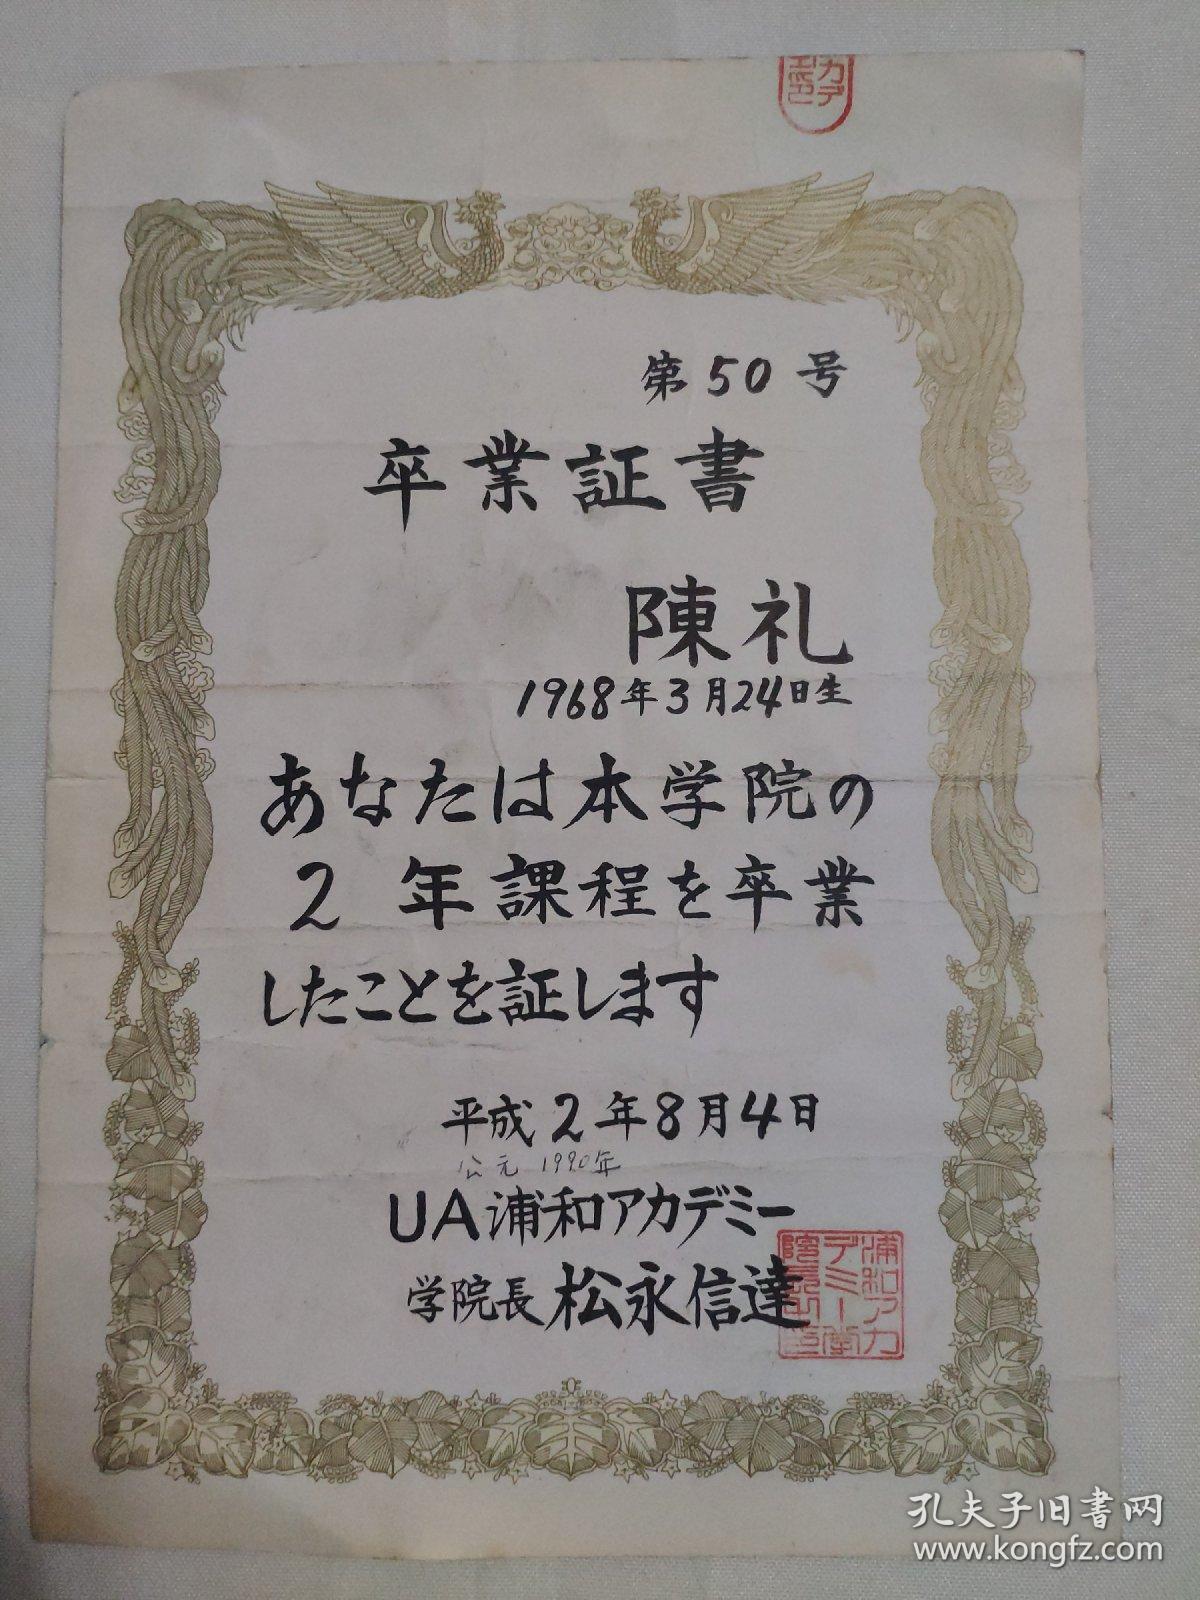 第50号
卒業証書
陳礼
1968年3月24日生
あなたは本学院の
2年課程を卒業
したことを証します
平成2年8月4日
公元 1990年
UA浦和アカデミー
学院長 松永信達
浦和アカ
デミー学
院長之印
孔夫子旧书网
www.kongfz.com